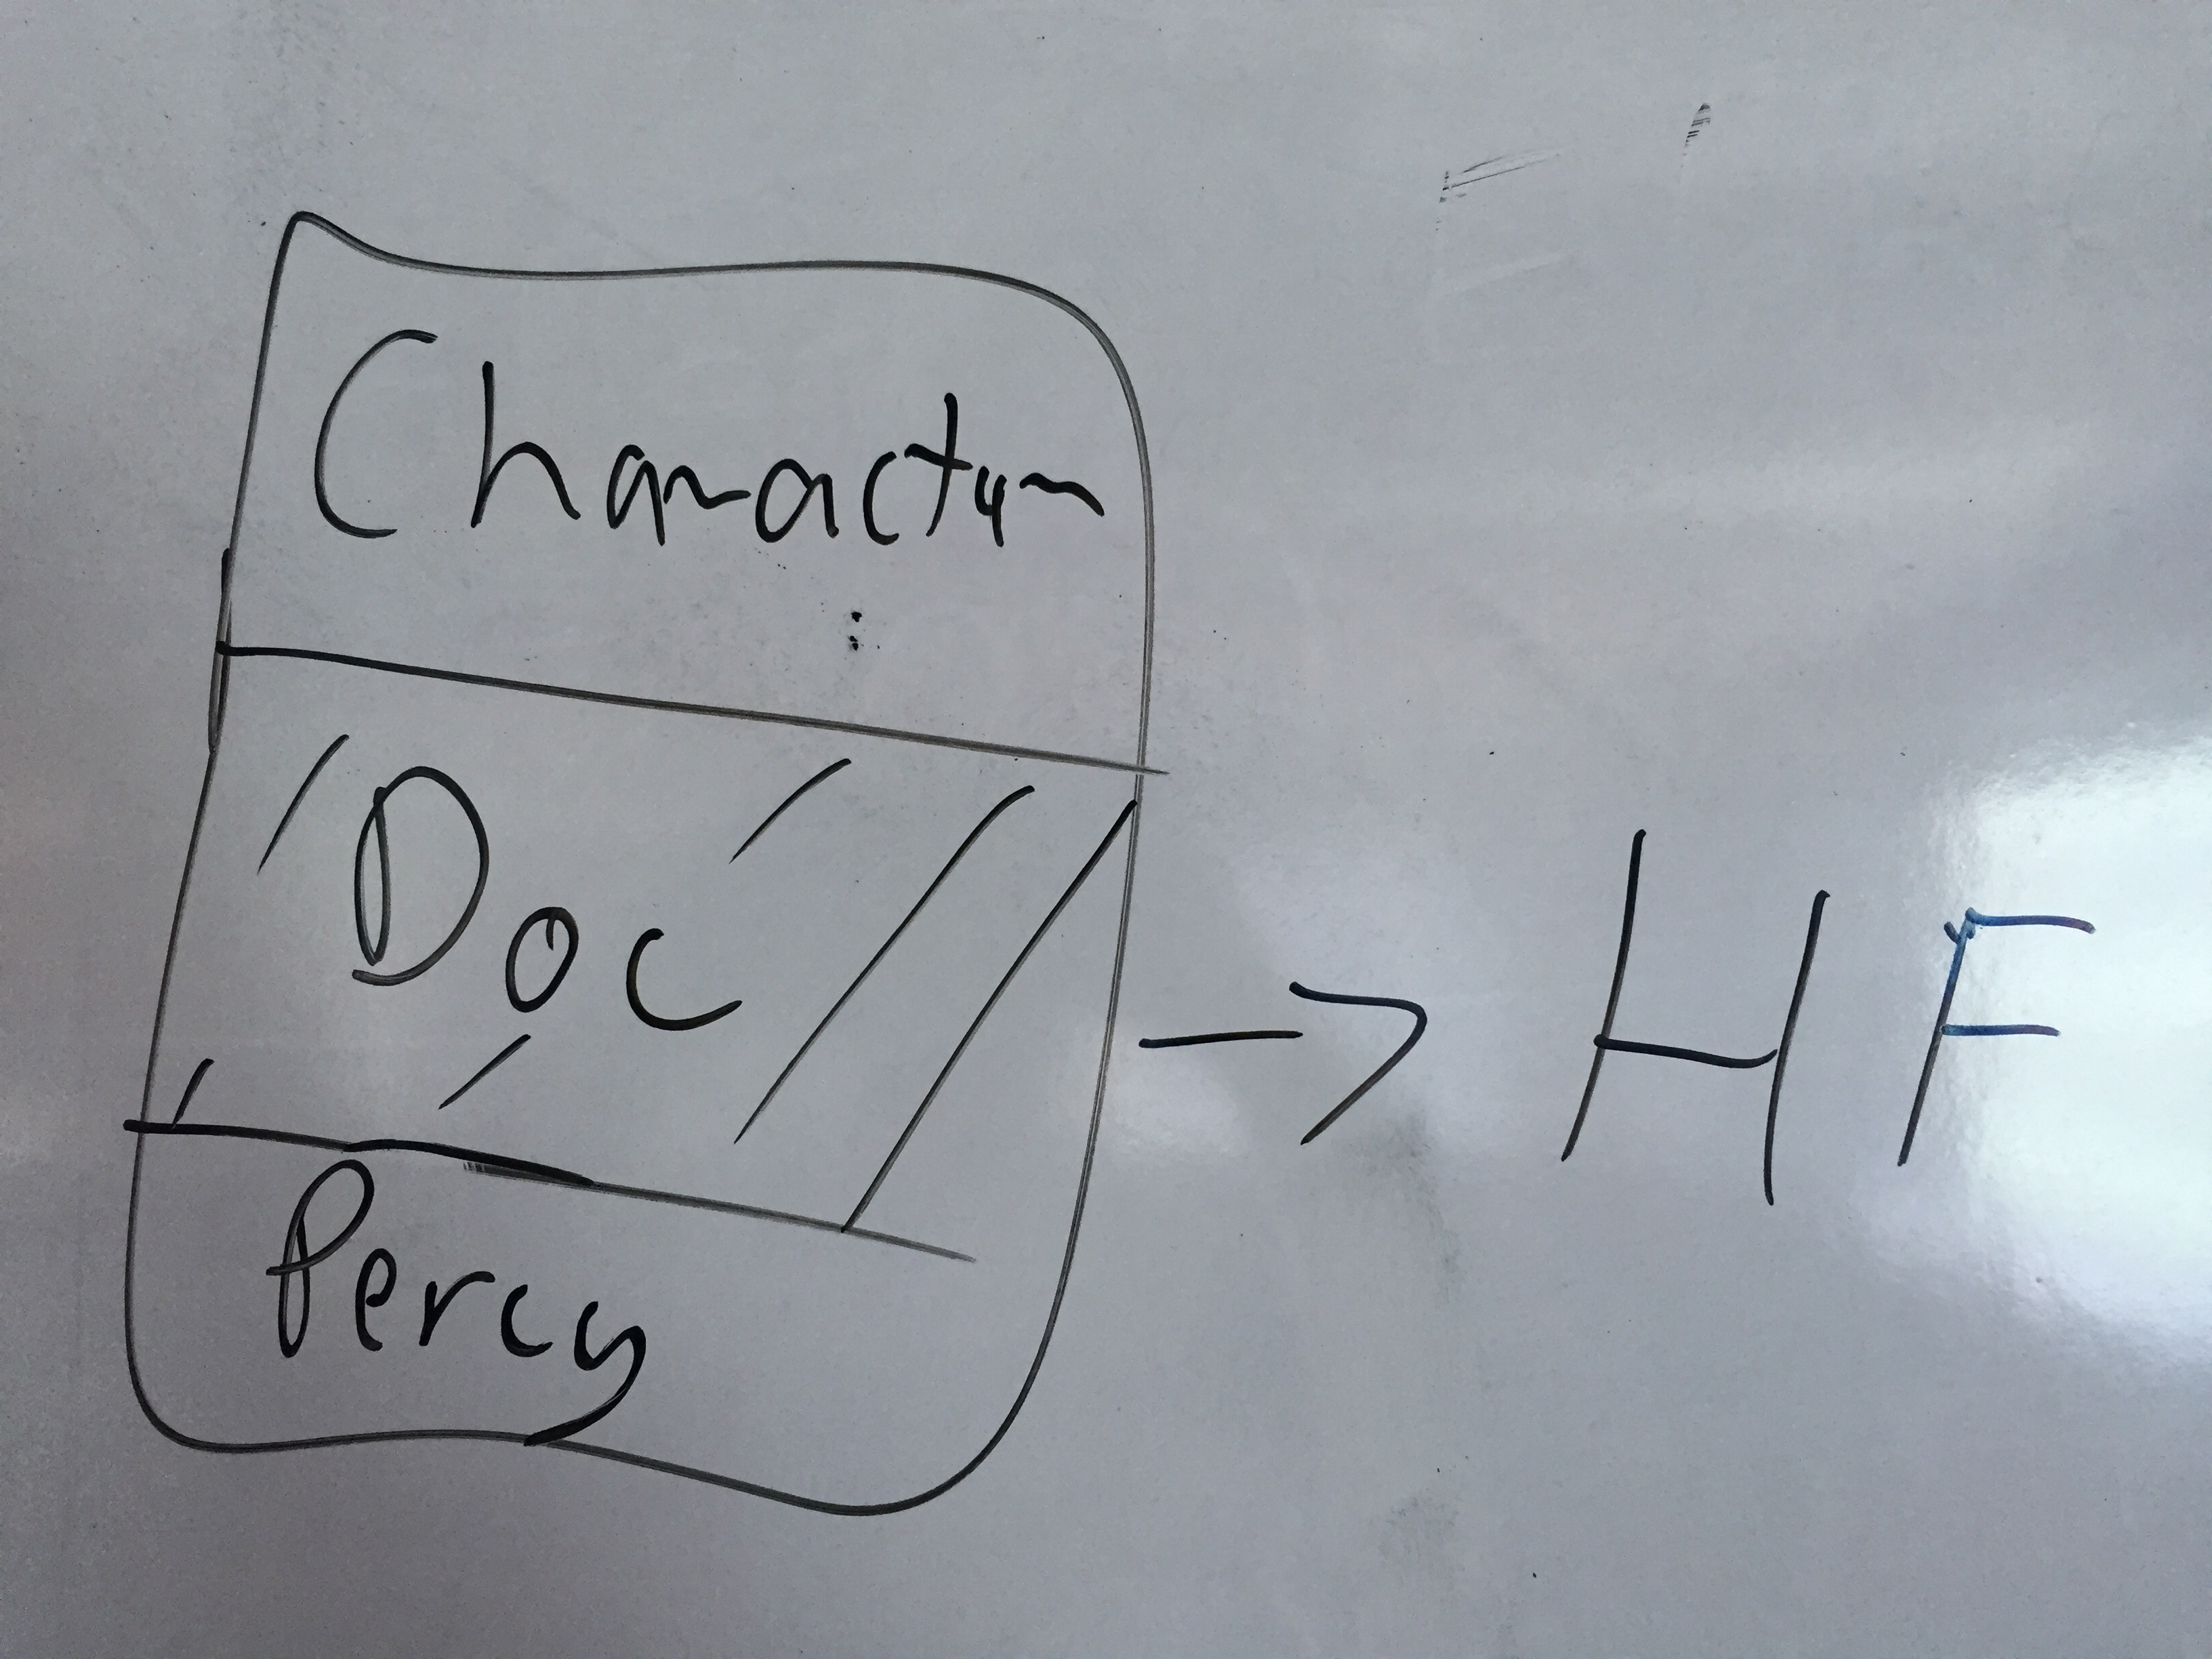 Character
Doc
Percy
→ HF